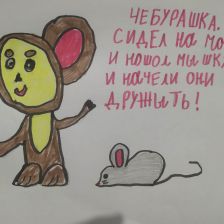 ЧЕБУРАШКА.
СИДЕЛ НА МО
И НОШОЛ МЫШК
И НАЧЕЛИ ОНИ
ДРУЖЫТЬ!